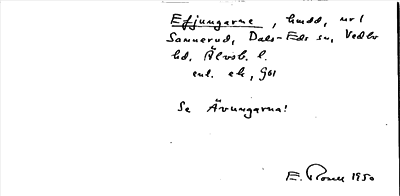 Efjungarne, hmdd, nr 1
Sannerud, Dals-Eds sn, Vedbo
hd. Älvsb. l.
enl. ek, 901
Se Ävungarna!
E. Rosell 1950